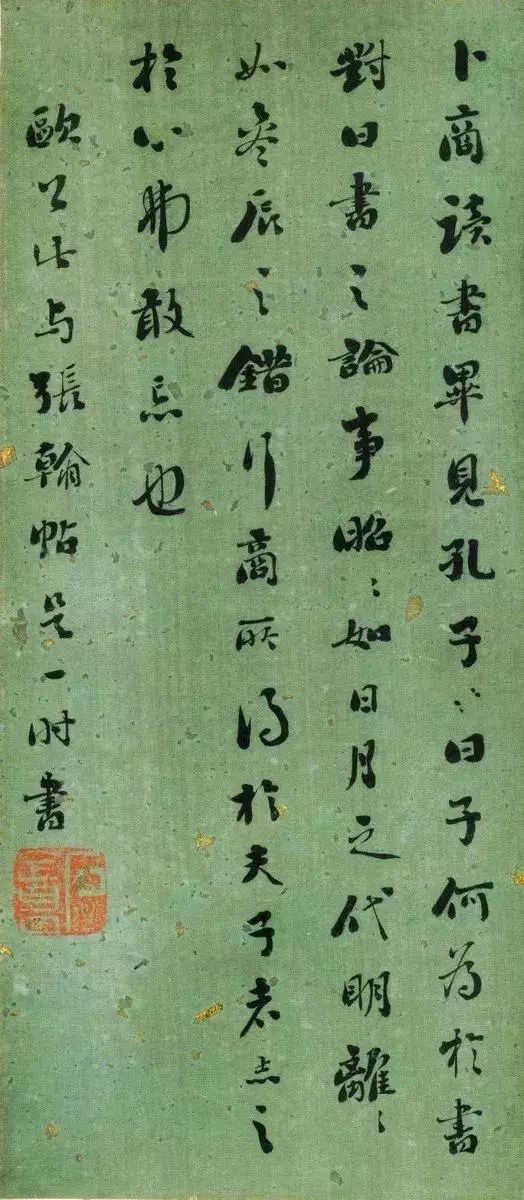 卜商读書畢見孔子〻曰子何为於書
對曰書之論事昭〻如日月之代明離〻
如參辰之錯行商所得於夫子者志之
於心弗敢忘也
歐公此与張翰帖是一时書